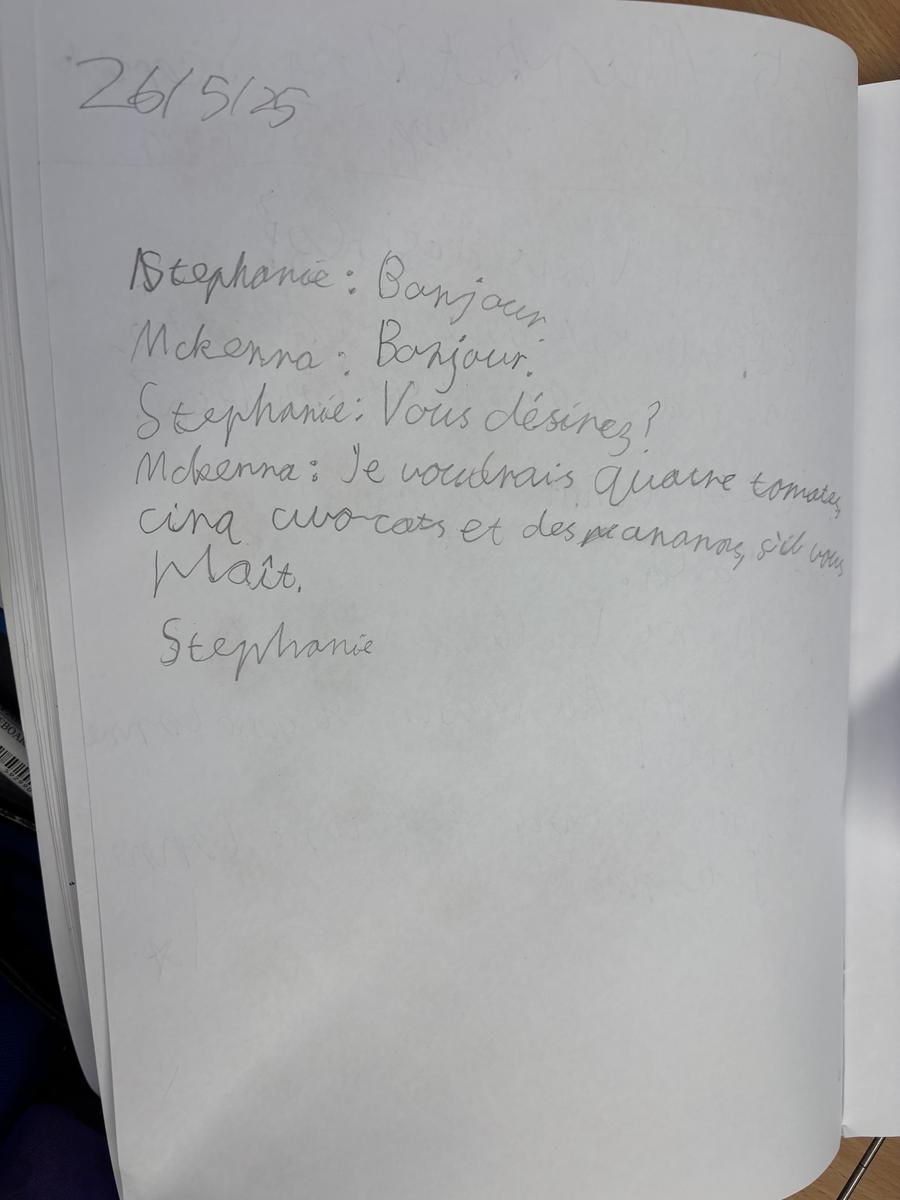 26/5/25
Stephanie: Bonjour
Mckenna: Bonjour.
Stephanie: Vous désirez?
Mckenna: Je voudrais quatre tomates,
cinq avocats et des ananas, s'il vous
plaît.
Stephanie